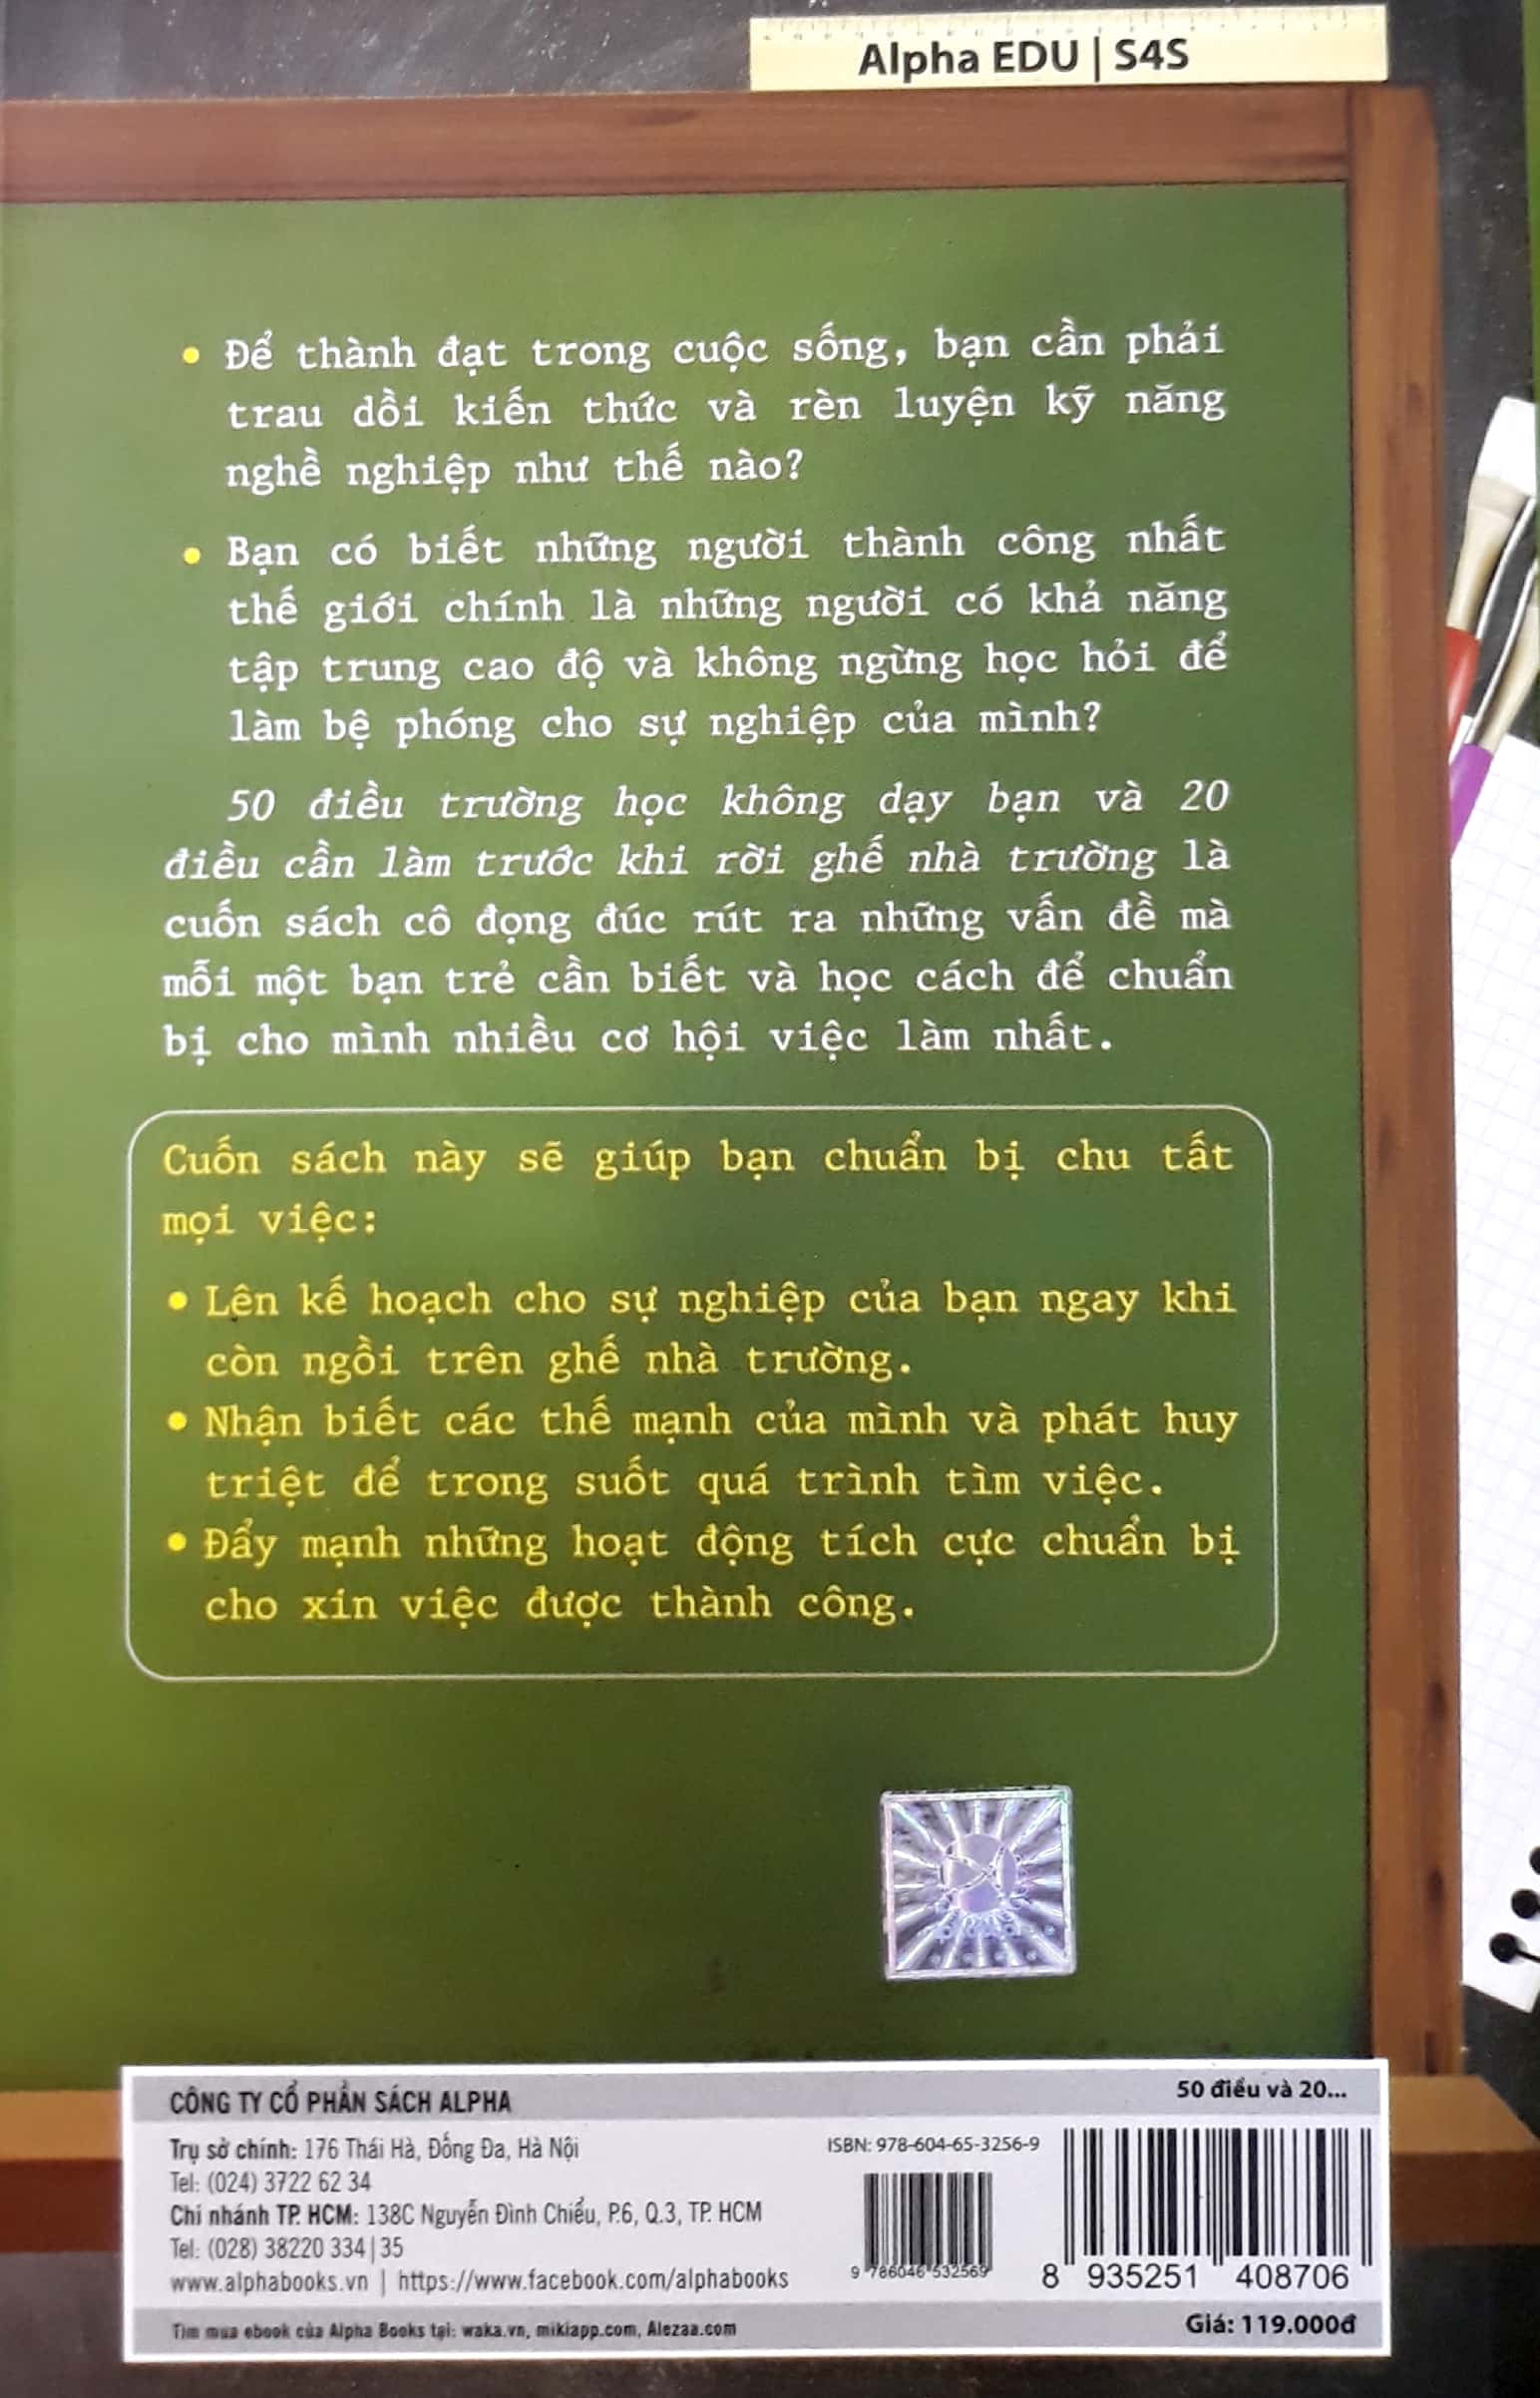 Alpha EDU | S4S
• Để thành đạt trong cuộc sống, bạn cần phải
trau dồi kiến thức và rèn luyện kỹ năng
nghề nghiệp như thế nào?
• Bạn có biết những người thành công nhất
thế giới chính là những người có khả năng
tập trung cao độ và không ngừng học hỏi để
làm bệ phóng cho sự nghiệp của mình?
50 điều trường học không dạy bạn và 20
điều cần làm trước khi rời ghế nhà trường là
cuốn sách cô đọng đúc rút ra những vấn đề mà
mỗi một bạn trẻ cần biết và học cách để chuẩn
bị cho mình nhiều cơ hội việc làm nhất.
Cuốn sách này sẽ giúp bạn chuẩn bị chu tất
mọi việc:
• Lên kế hoạch cho sự nghiệp của bạn ngay khi
còn ngồi trên ghế nhà trường.
• Nhận biết các thế mạnh của mình và phát huy
triệt để trong suốt quá trình tìm việc.
• Đẩy mạnh những hoạt động tích cực chuẩn bị
cho xin việc được thành công.
CÔNG TY CỔ PHẦN SÁCH ALPHA
Trụ sở chính: 176 Thái Hà, Đống Đa, Hà Nội
Tel: (024) 3722 62 34
Chi nhánh TP. HCM: 138C Nguyễn Đình Chiểu, P.6, Q.3, TP. HCM
Tel: (028) 38220 334|35
www.alphabooks.vn | https://www.facebook.com/alphabooks
Tìm mua ebook của Alpha Books tại: waka.vn, mikiapp.com, Alezaa.com
50 điều và 20...
ISBN: 978-604-65-3256-9
9 786046 532569
8 935251 408706
Giá: 119.000đ